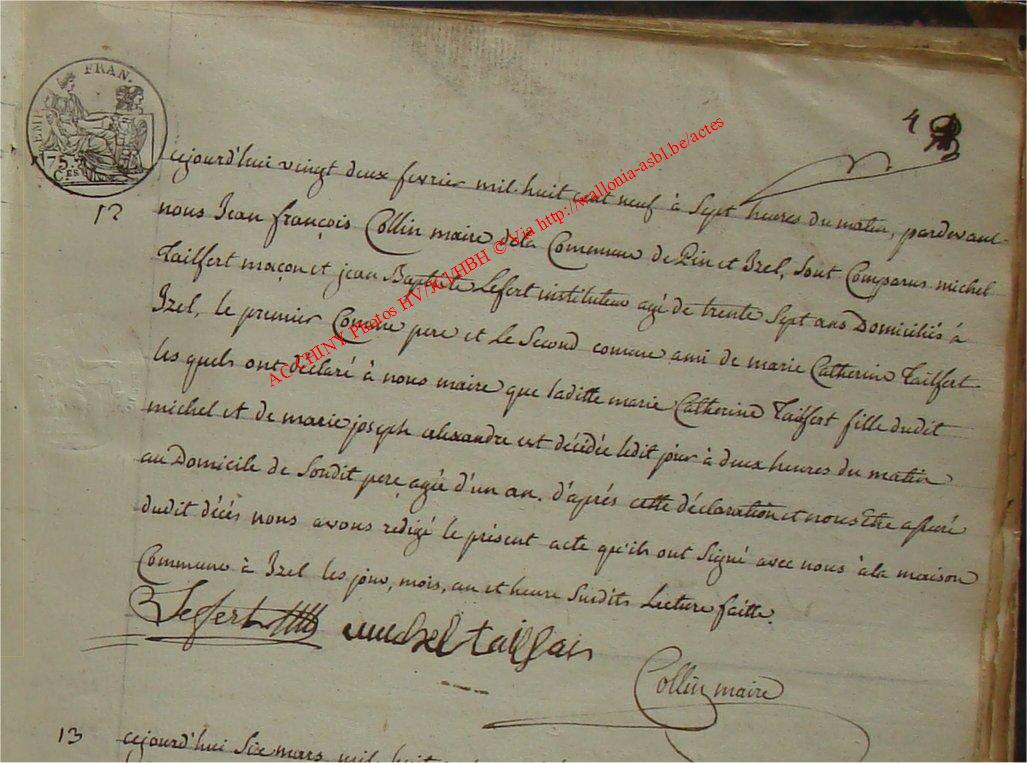 EMP. FRAN.
75.
C.ES
4
12
cejourd'hui vingt deux fevrier mil huit cent neuf à Sept heures du matin, pardevant
nous Jean françois Collin maire de la Commune de Pin et Izel, Sont Comparus michel
Tailfert maçon et jean Baptiste Lefert instituteur agé de trente Sept ans Domiciliés à
Izel, le premier Comme pere et Le Second comme ami de marie Catherine Tailfert
les quels ont déclaré à nous maire que laditte marie Catherine Tailfert fille dudit
michel et de marie joseph alexandre est décédée ledit jour à deux heures du matin
au Domicile de Soudit pere agée d'un an. d'aprés cette déclaration et nous être assuré
dudit décés nous avons redigé le présent acte qu'ils ont Signé avec nous à la maison
Commune à Izel les jour, mois, an et heure Susdits Lecture faitte.
Lefert
michel taillfair
Collin maire
13
cejourd'hui Six mars mil huit
ACCHINY Photos HV/KVHBH © Via http://wallonia-asbl.be/actes